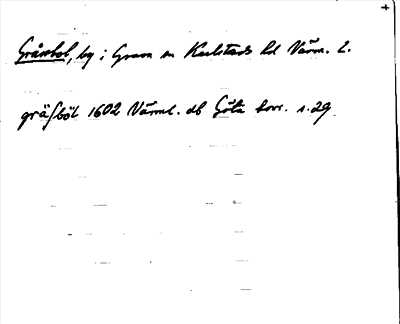 Gråssbol, by i Grava sn Karlstads hd Värm. l.
gräſböl 1602 Värml. db Göta hovr. s. 29